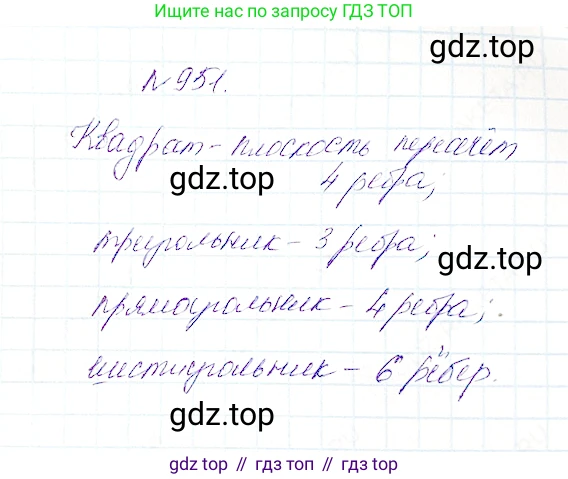 Ищите нас по запросу ГДЗ ТОП
gdz.top
№951.
Квадрат - плоскость пересечёт
gdz.top
4 ребра;
треугольник - 3 ребра;
gdz.top
прямоугольник - 4 ребра;
шестиугольник - 6 рёбер.
gdz.top
gdz top // гдз топ // gdz.top